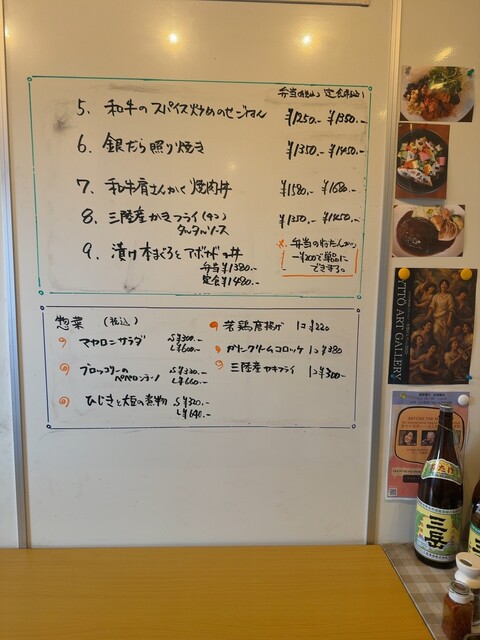 弁当(税込) 定食(税込)
5. 和牛のスパイス炒めのせごはん ¥1250.- ¥1350.-
6. 銀だら照り焼き ¥1350.- ¥1450.-
7. 和牛肩さんかく焼肉丼 ¥1580.- ¥1680.-
8. 三陸産かきフライ(5コ) ¥1350.- ¥1450.-
タルタルソース
9. 漬け本まぐろとアボカド丼
弁当¥1380.-
定食¥1480.-
※弁当の
-¥200で単品に
できます。
惣菜 (税込)
マカロニサラダ S¥300.-
L¥600.-
ブロッコリーの S¥330.-
ペペロンチーノ L¥660.-
ひじきと大豆の煮物 S¥320.-
L¥640.-
若鶏唐揚げ 1コ¥220
かにクリームコロッケ 1コ¥380
三陸産カキフライ 1コ¥300-
YTTŌ ART GALLERY
三岳